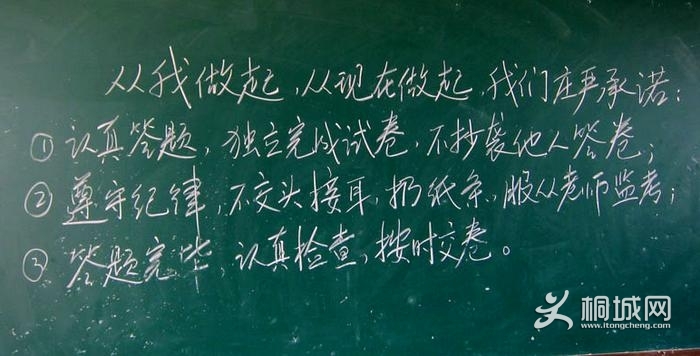 从我做起，从现在做起，我们庄严承诺：
①认真答题，独立完成试卷，不抄袭他人答卷；
②遵守纪律，不交头接耳，扔纸条，服从老师监考；
③答题完毕，认真检查，按时交卷。
桐城网
www.itongcheng.com